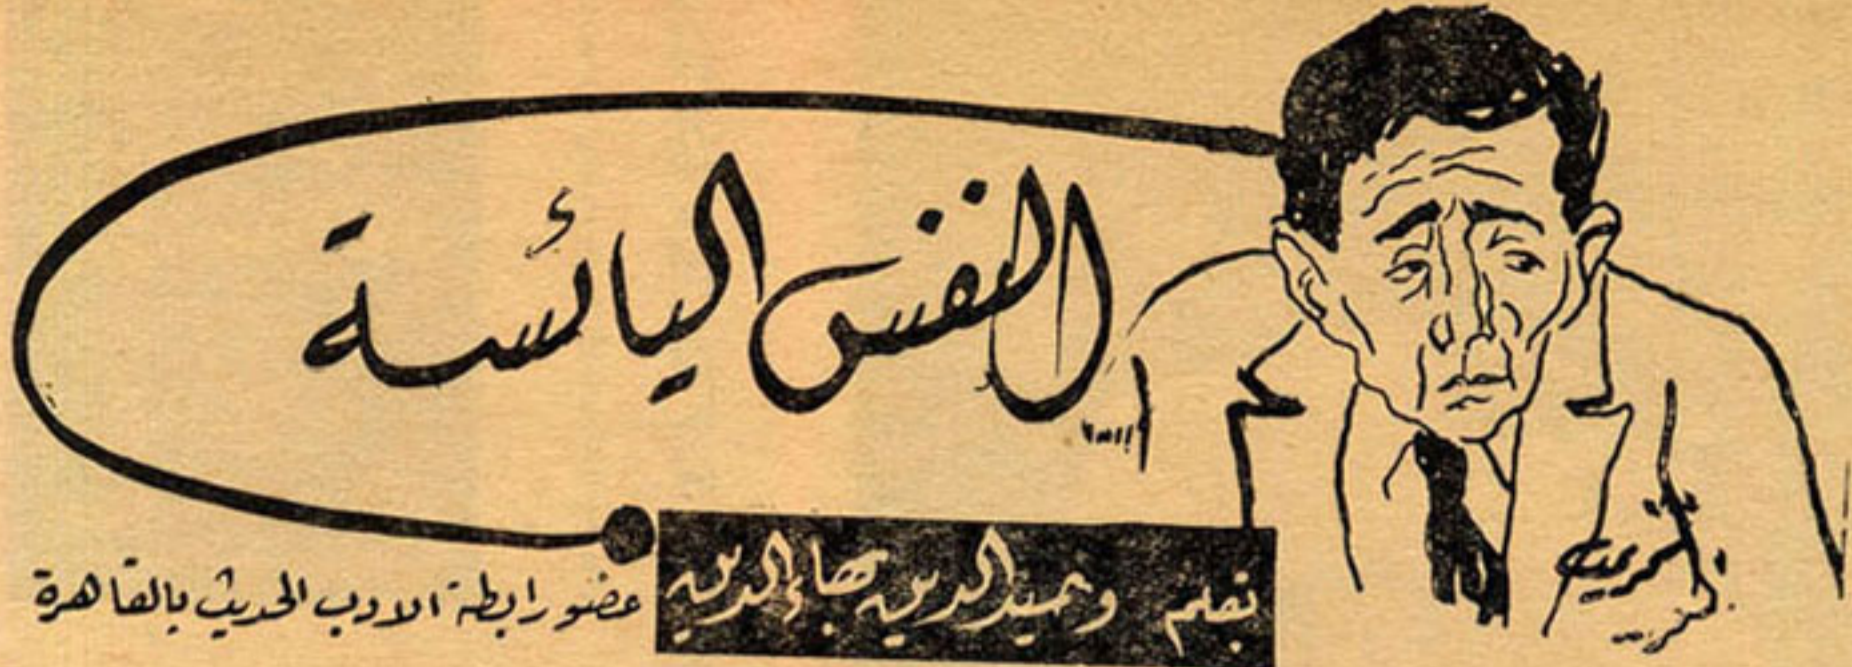 النفس اليائسة
بقلم وحيد الدين بهاء الدين
عضو رابطة الادب الحديث بالقاهرة